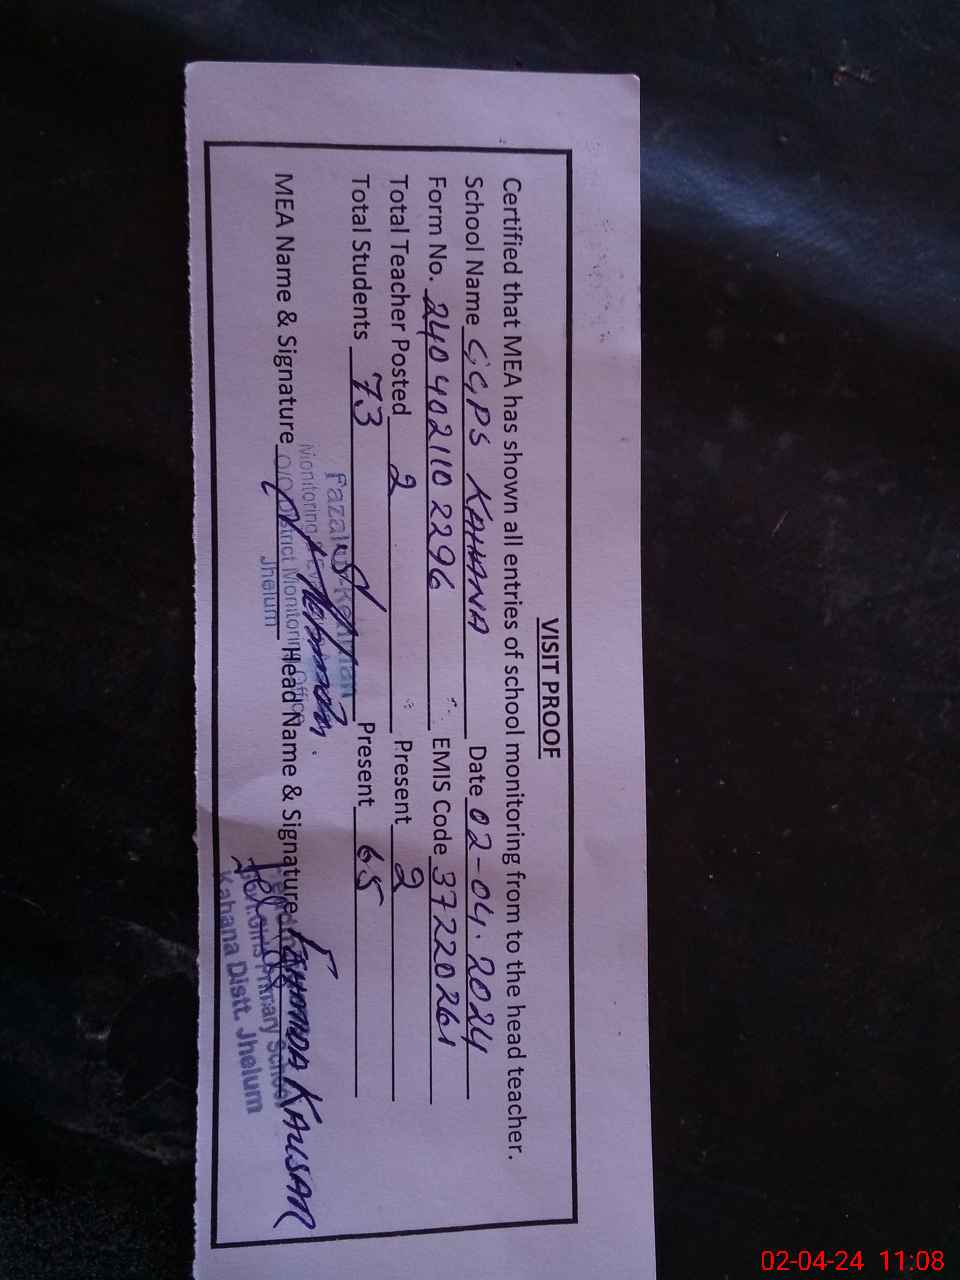 VISIT PROOF
Certified that MEA has shown all entries of school monitoring from to the head teacher.
School Name GGPS KAHANA Date 02-04-2024
Form No. 2404021102296 EMIS Code 37220261
Total Teacher Posted 2 Present 2
Total Students 73 Present 65
MEA Name & Signature Head Name & Signature FAHMIDA KAUSAR
Monitoring
District Monitoring Office
Jhelum
Primary School
Kahana Distt. Jhelum
02-04-24 11:08